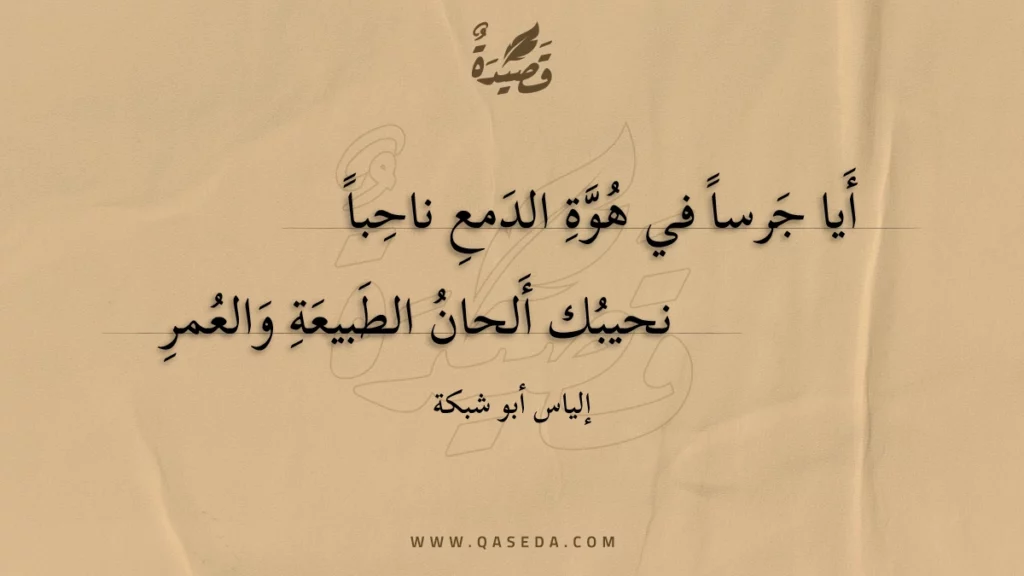 قَصِيْدَةٌ
أَيا جَرساً في هُوَّةِ الدَمعِ ناحِباً
نحيبُك أَلحانُ الطَبيعَةِ وَالعُمرِ
إلياس أبو شبكة
WWW.QASEDA.COM